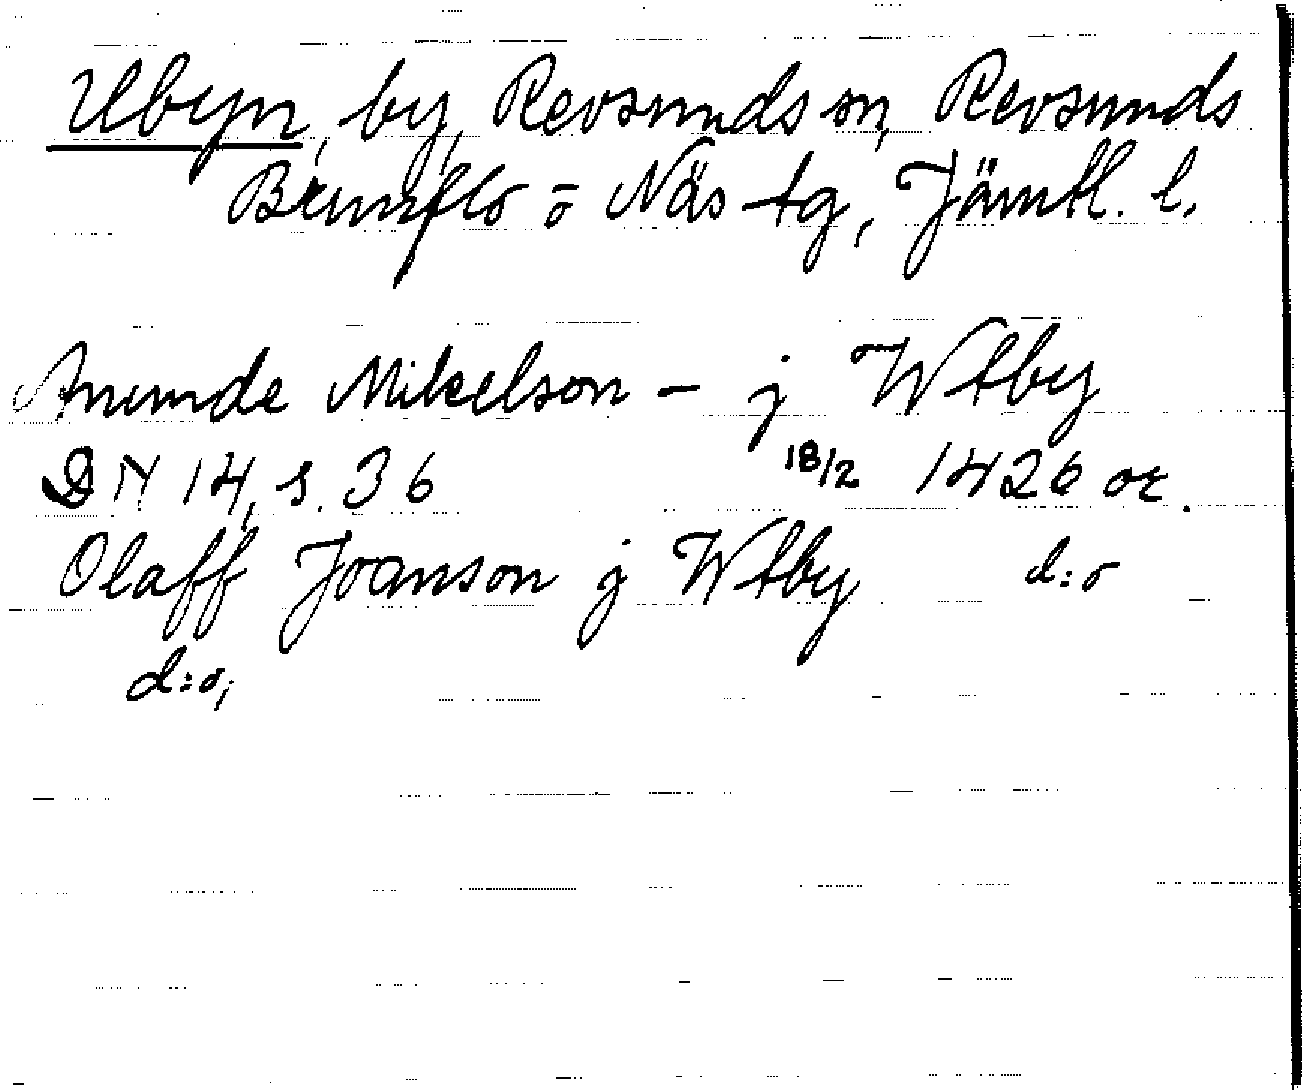 Utbyn, by, Revsunds sn, Revsunds
Brunflo o Näs tg, Jämtl. l.
Anunde Mikelson - j Wtby
DN 14, s. 36 18/2 1426 or.
Olaff Joanson j Wtby d:o
d:o,